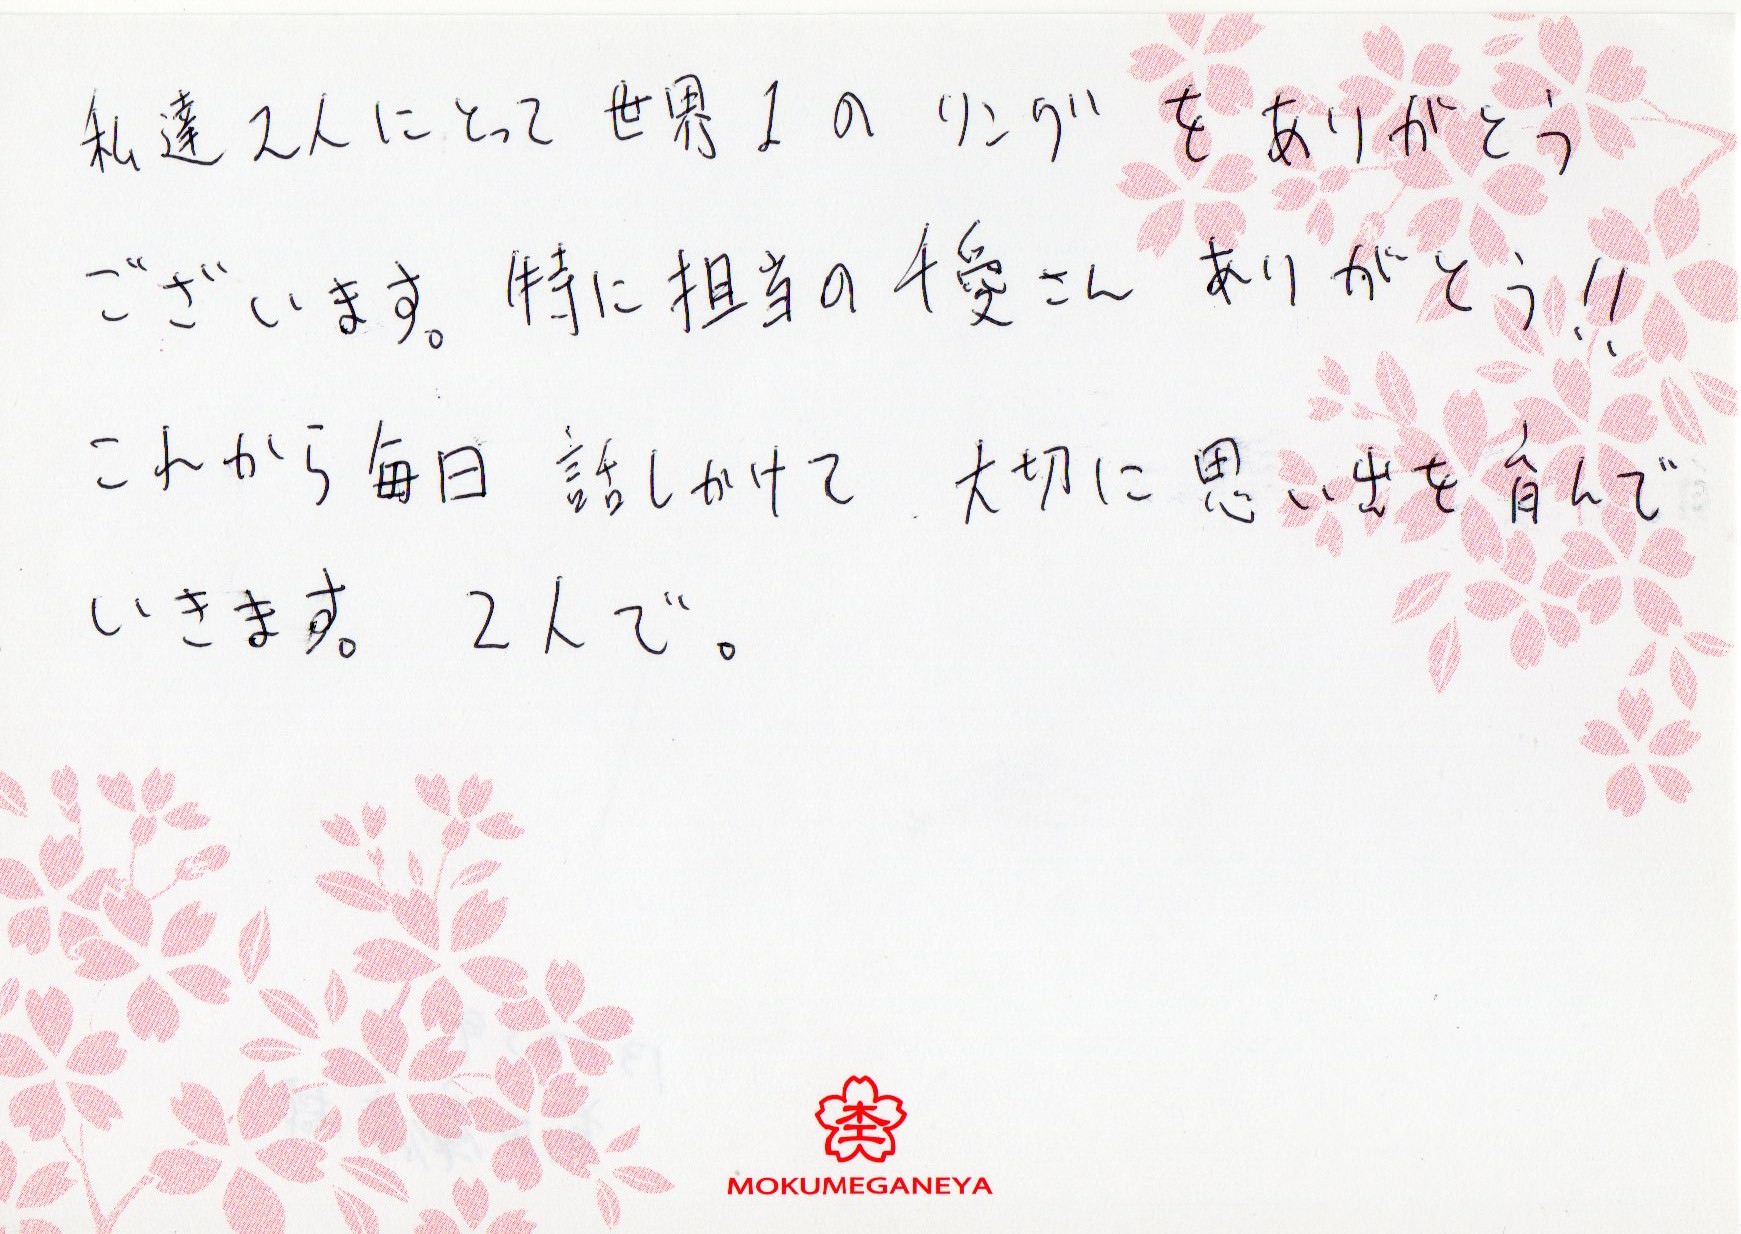 私達2人にとって 世界1の リングをありがとう
ございます。特に担当の 千愛さん ありがとう!!
これから毎日 話しかけて 大切に思い出を育んで
いきます。 2人で。
MOKUMEGANEYA